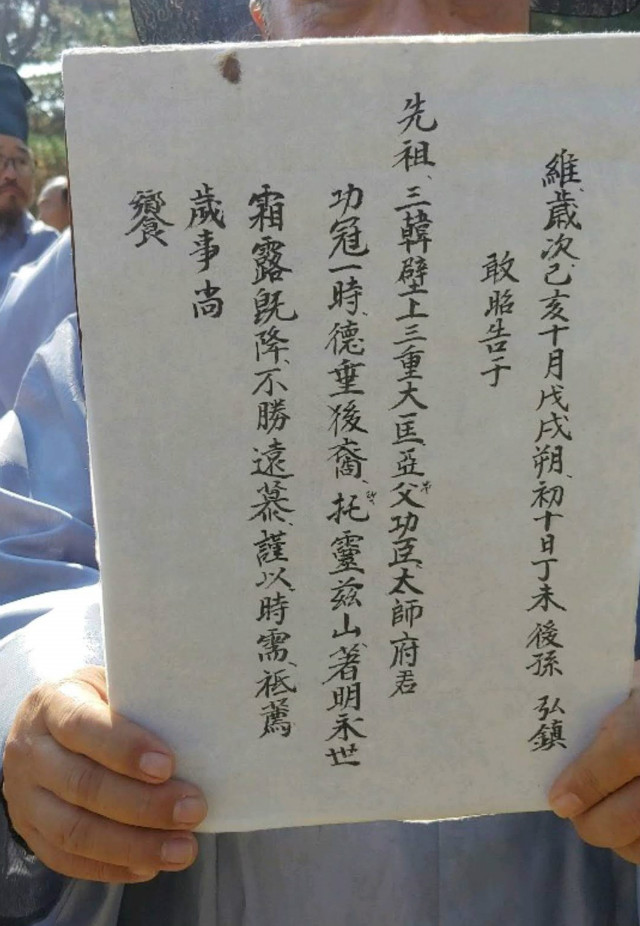 維歲次己亥十月戊戌朔初十日丁未後孫 弘鎮
敢昭告于
先祖三韓壁上三重大匡亞父功臣太師府君
功冠一時德垂後裔托靈玆山著明永世
霜露旣降不勝遠慕謹以時需祗薦
歲事尚
饗